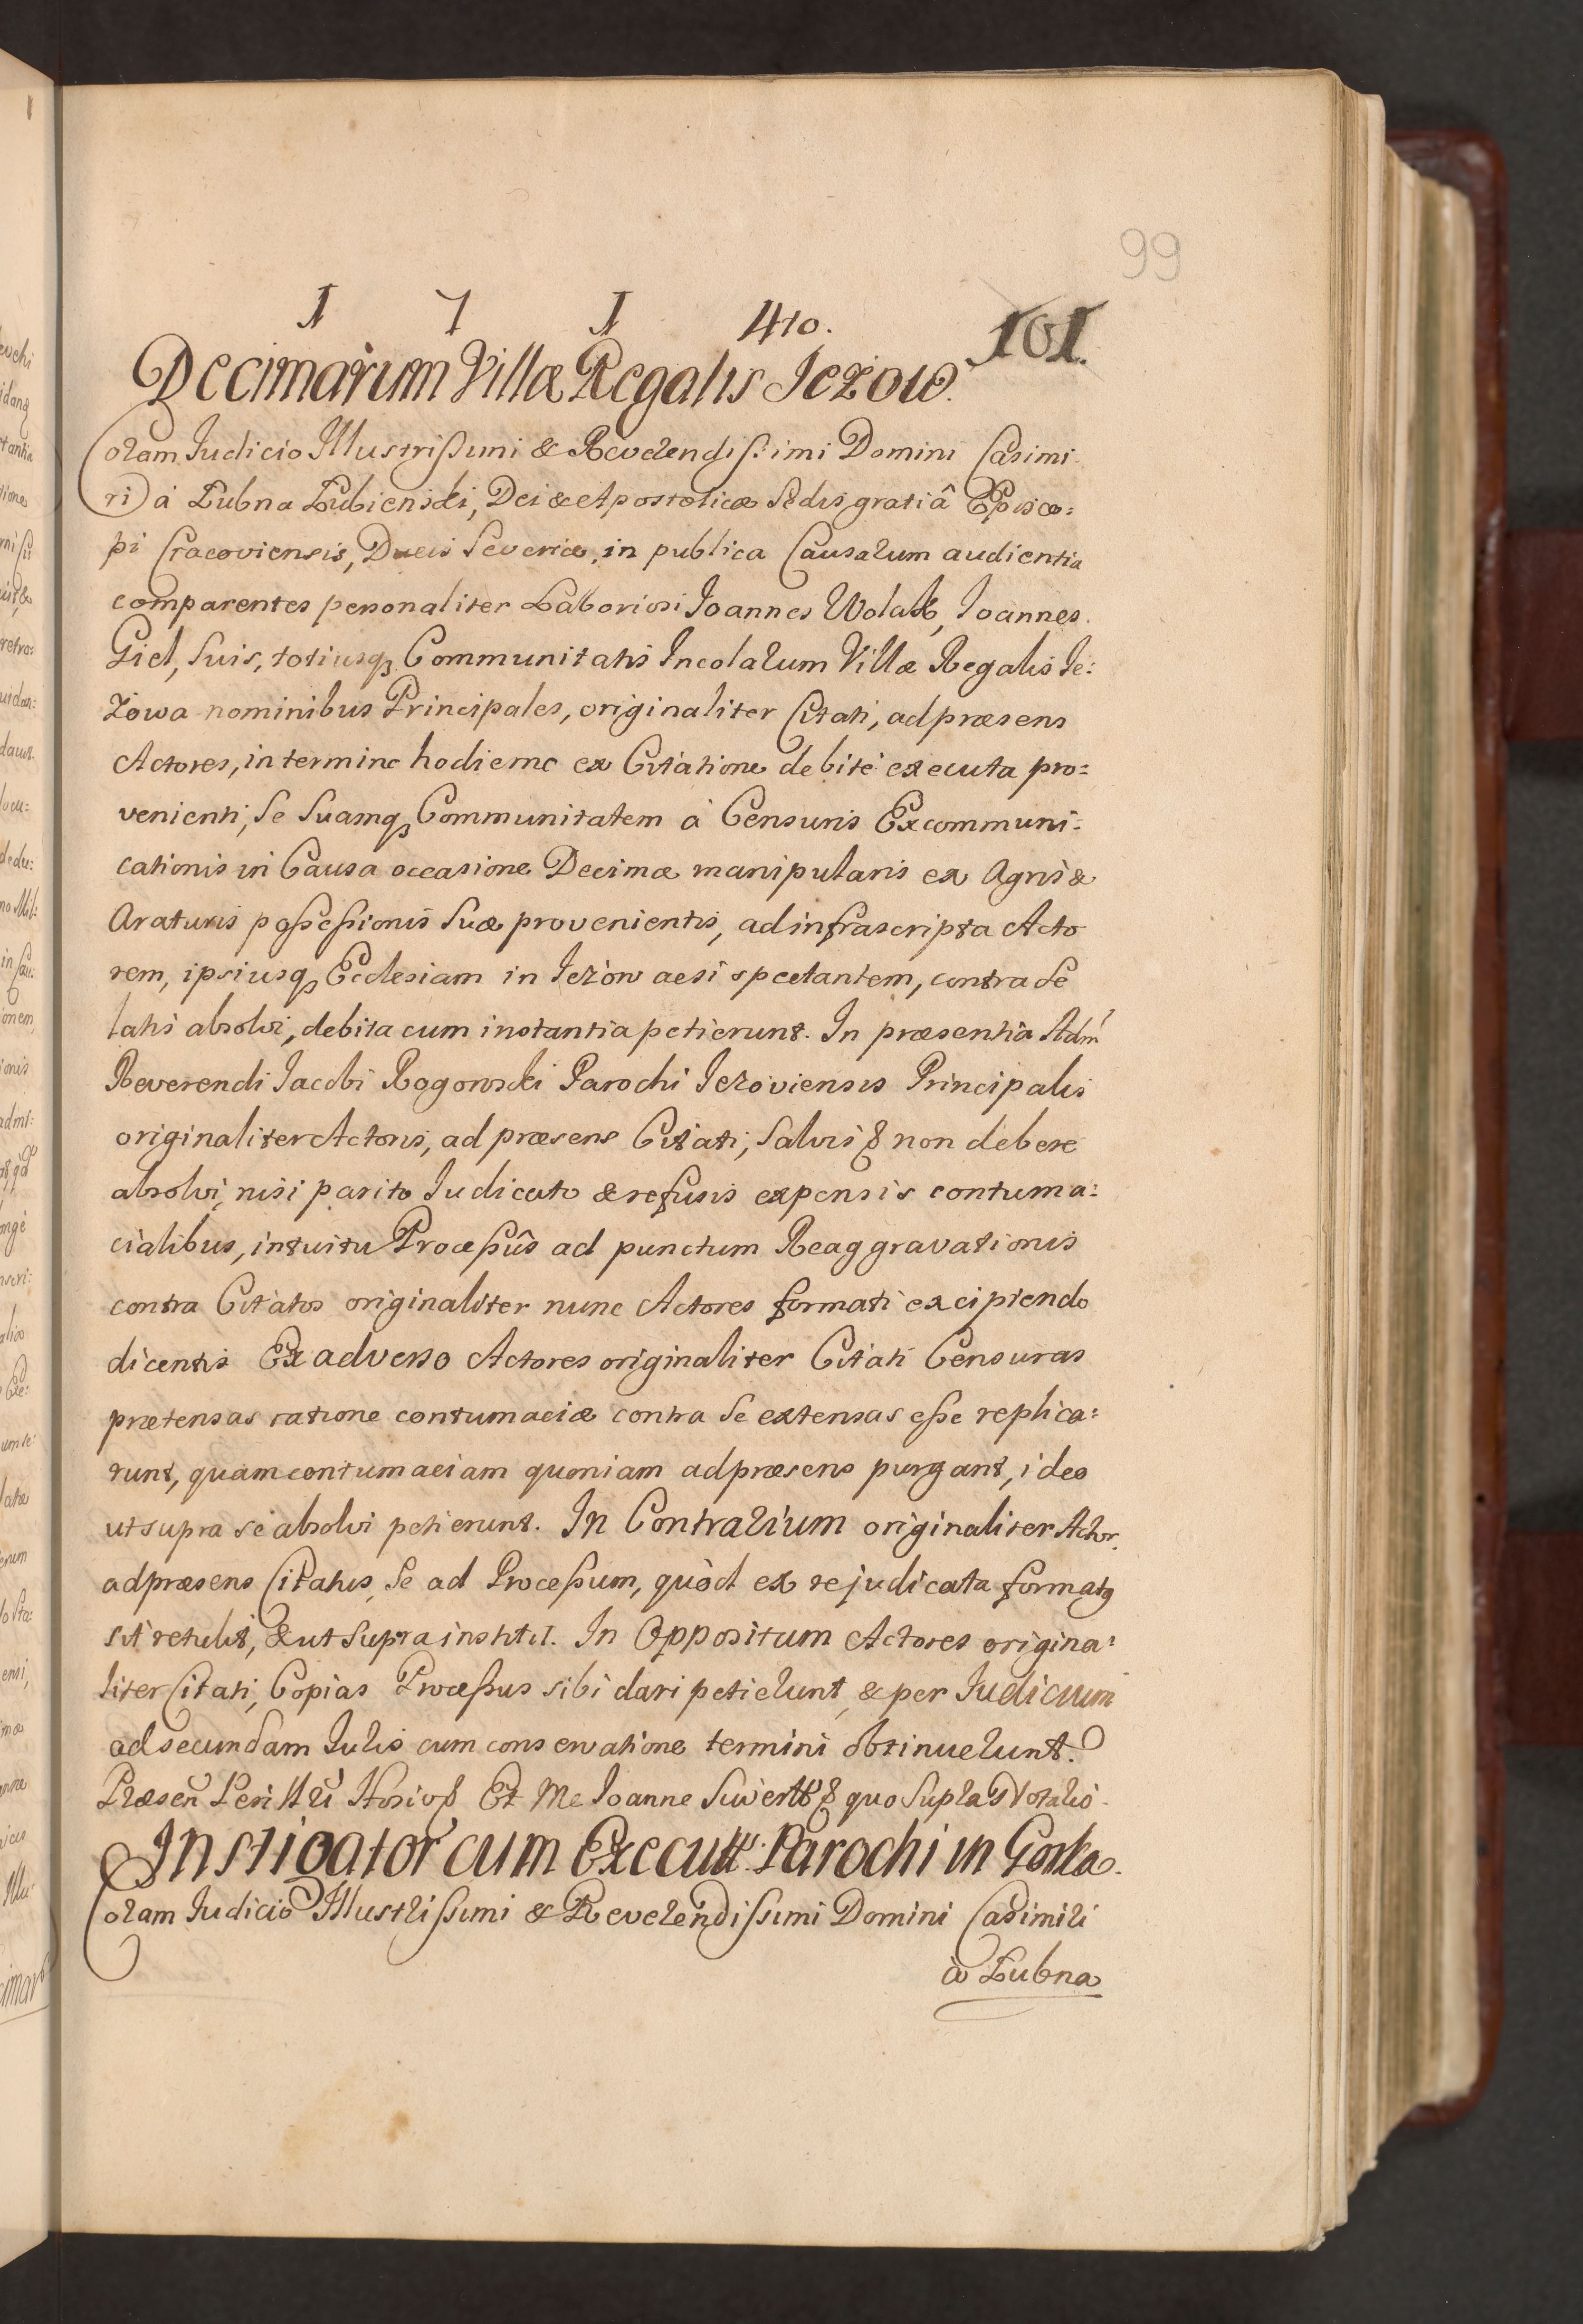 99
1 7 1 4to. 101.
Decimarum Villæ Regalis Jeżow.
Coram Judicio Illustrissimi & Reverendissimi Domini Casimi
ri à Łubna Łubienski, Dei & Apostolicæ Sedis gratiâ Episco=
pi Cracoviensis, Ducis Severiæ, in publica Causarum audientia
comparentes personaliter Laboriosi Joannes Wolak, Joannes.
Giel, suis, totiusq; Communitatis Incolarum Villæ Regalis Je:
żowa nominibus Principales, originaliter Citati, ad præsens
Actores, in termino hodierno ex Citatione debitè executa pro=
venienti, Se Suamq; Communitatem à Censuris Excommuni:
cationis in Causa occasione Decimæ manipularis ex Agris &
Araturis possessionis suæ provenientis, ad infrascripta Acto
rem, ipsiusq; Ecclesiam in Jeżow spectantem, contra Se
latis absolvi, debita cum instantia petierunt. In præsentia Adm
Reverendi Jacobi Rogowski Parochi Jeżoviensis Principalis
originaliter Actoris, ad præsens Citati, Salvis & non debere
absolvi, nisi parito Judicato & refusis expensis contuma:
cialibus, intuitu Processûs ad punctum Reaggravationis
contra Citatos originaliter nunc Actores formati excipiendo
dicentis Ex adverso Actores originaliter Citati Censuras
prætensas ratione contumaciæ contra Se extensas esse replica:
runt, quam contumaciam quoniam ad præsens purgant, ideo
ut supra se absolvi petierunt. In Contrarium originaliter Actor.
ad præsens Citatus, Se ad Processum, quòd ex re judicata formatus
sit retulit, & ut supra institit. In Oppositum Actores origina:
liter Citati, Copias Processus sibi dari petierunt, & per Judicium
ad secundam Julis cum conservatione termini obtinuerunt.
Præsen Et Me Joanne quo Supra Notario.
Instigator cum Execut. Parochi in Gorka.
Coram Judicio Illustrissimi & Reverendissimi Domini Casimiri
à Łubna